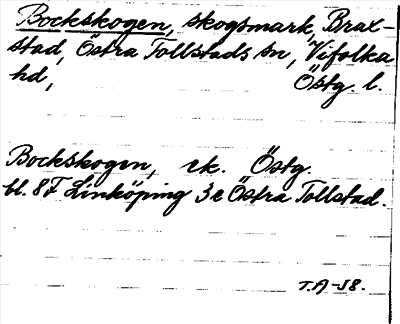 Bockskogen, skogsmark, Brax-
stad, Östra Tollstads sn, Vifolka
hd, Östg. l.
Bockskogen, ek. Östg.
bl. 8F Linköping 3e Östra Tollstad.
T.A-58.